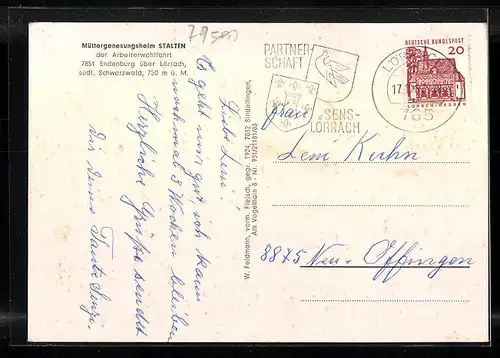 79500
Müttergenesungsheim STALTEN
der Arbeiterwohlfahrt
7851 Endenburg über Lörrach,
südl. Schwarzwald, 750 m ü. M.
Liebe Leni!
Es geht mir gut, ich kann
nochmal 3 Wochen bleiben
Herzliche Grüße sendet
dir deine Tante Senzi.
W. Feldmann, vorm. Fleisch, gegr. 1924, 7032 Sindelfingen,
Am Vogelhain 8 - Nr. 931/21181/68
PARTNER-
SCHAFT
SENS-
LÖRRACH
17.
785
DEUTSCHE BUNDESPOST
20
LORSCH/HESSEN
Frau
Leni Kuhn
8875 Neu-Offingen